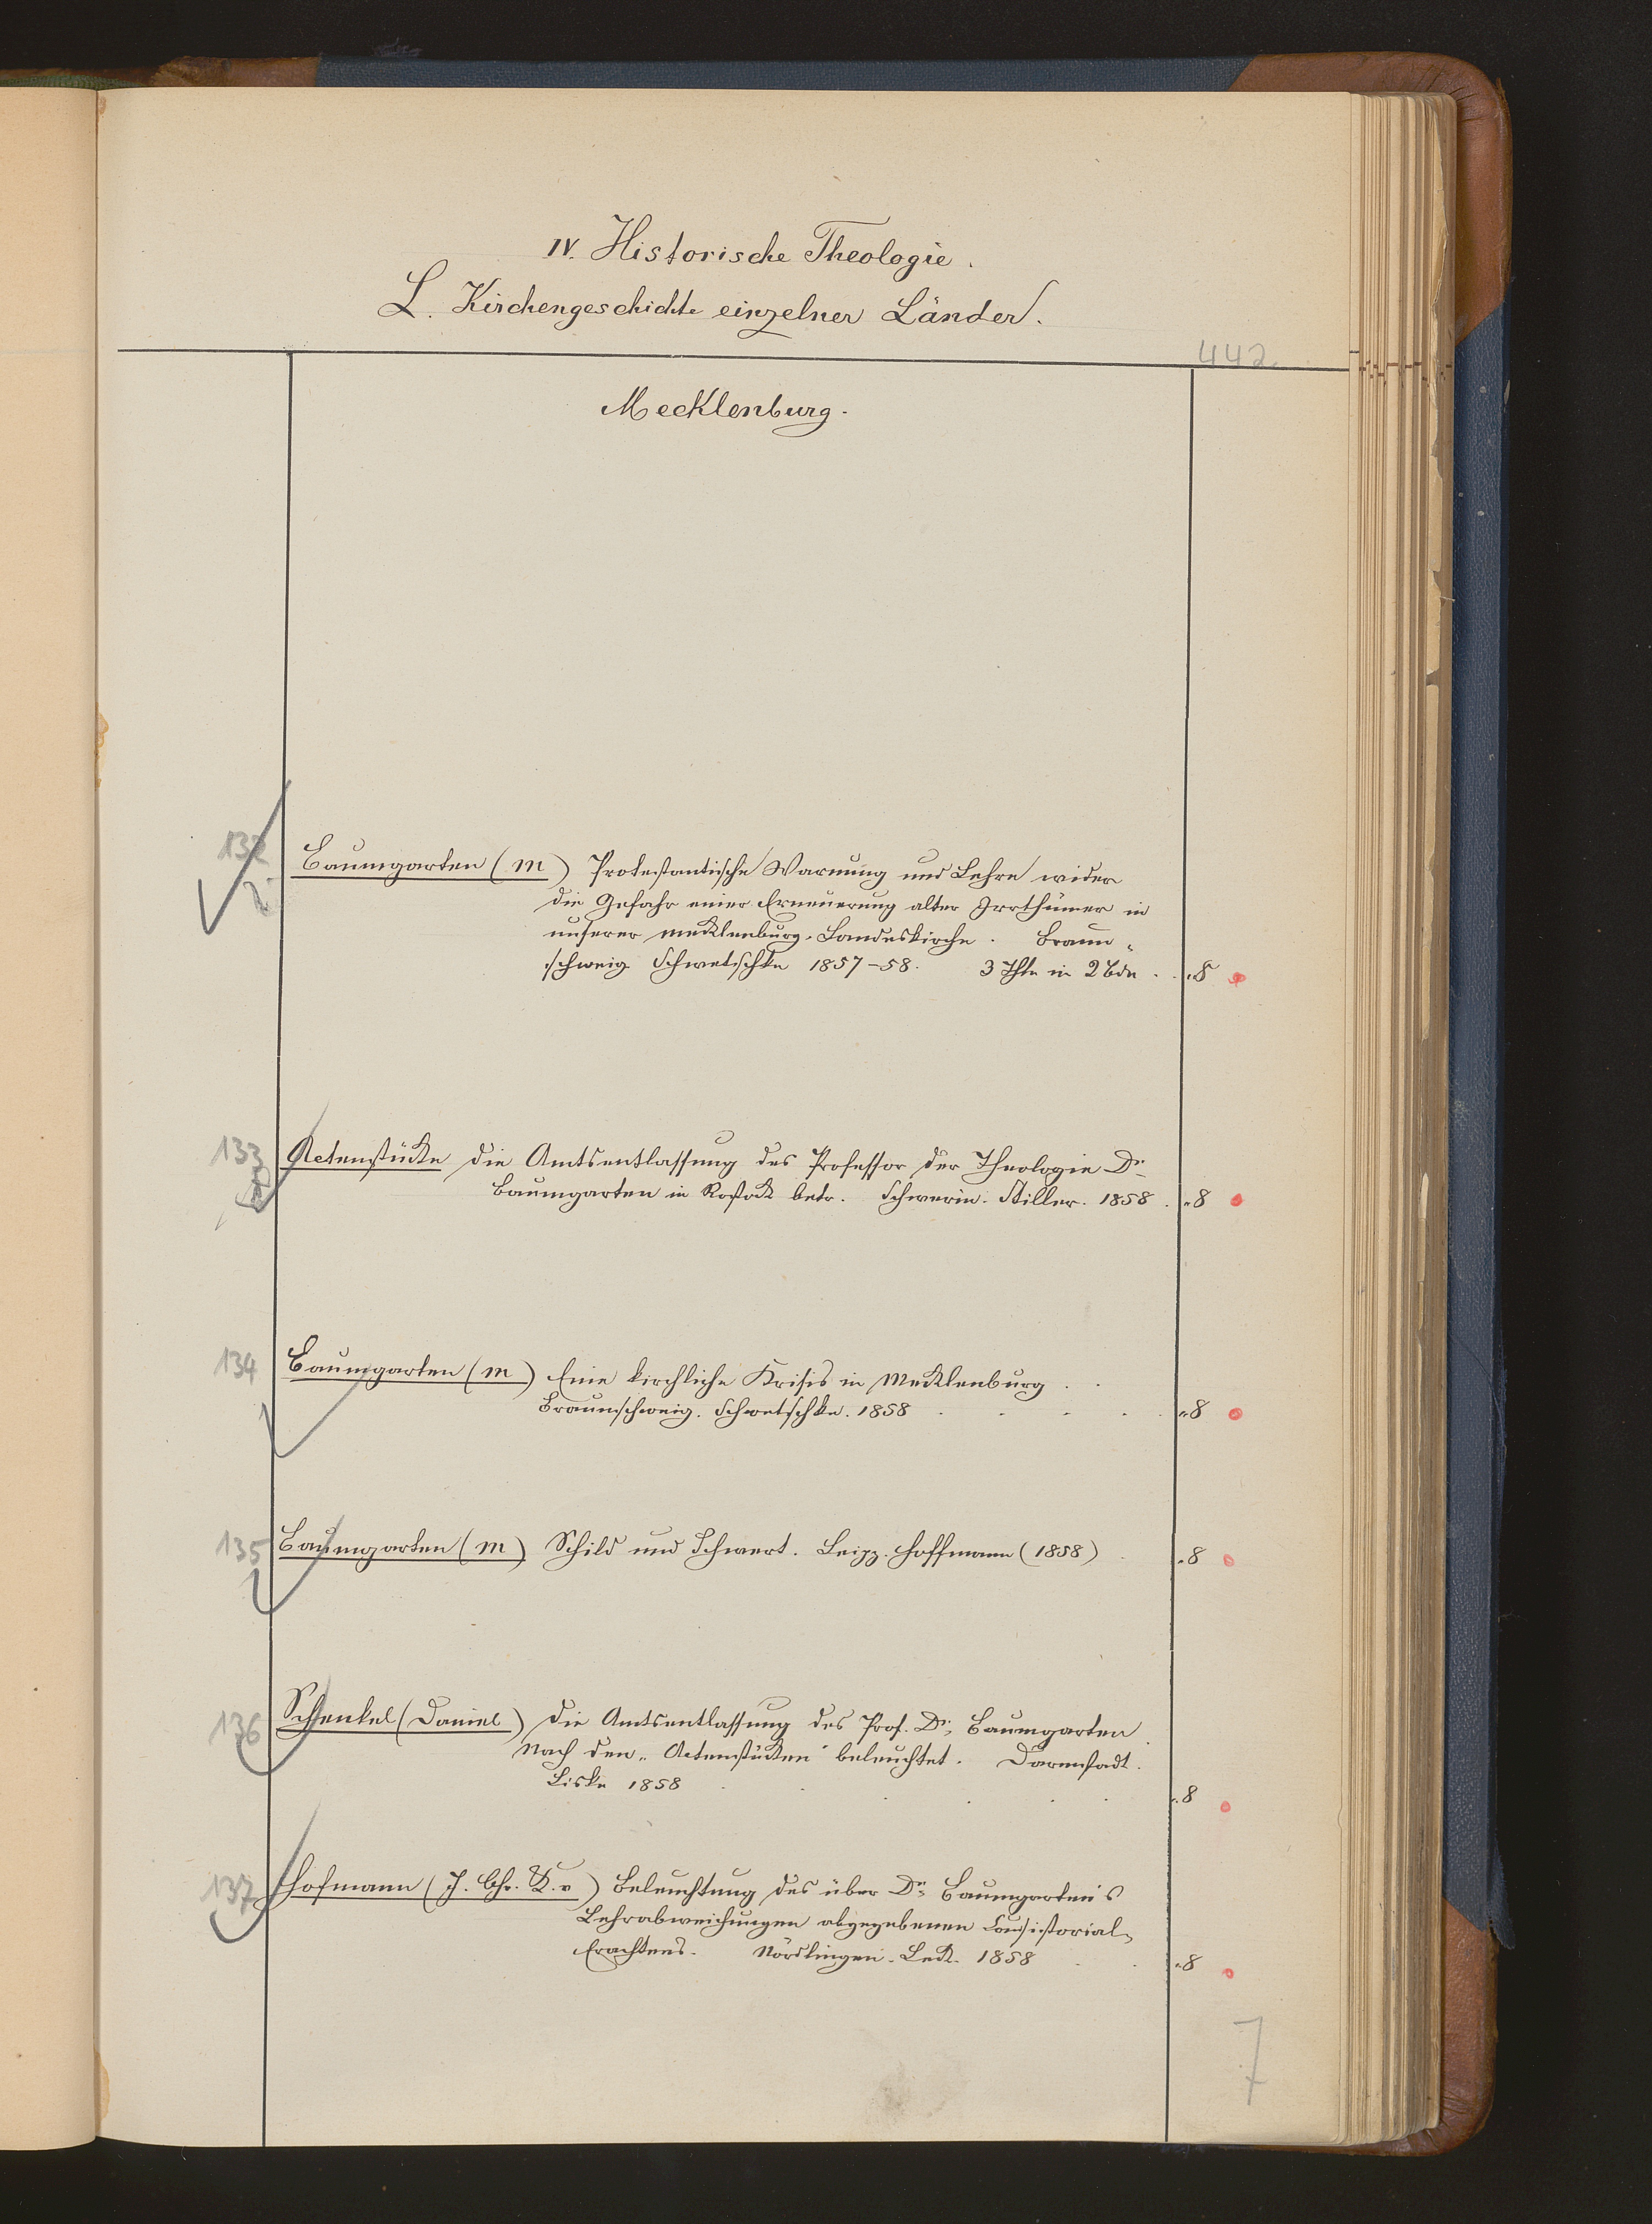 IV. Historische Theologie.
L. Kirchengeschichte einzelner Länder.
442.
Mecklenburg.
132
2
Baumgarten (M) Protestantische Warnung und Lehre wider
die Gefahr einer Erneuerung alter Irrthümer in
unserer mecklenburg. Landeskirche. Braun-
schweig Schwetschke 1857-58. 3 Thle in 2 Bdn . . 8
133
Actenstücke die Amtsentlassung des Professor der Theologie Dr
Baumgarten in Rostock betr. Schwerin. Stiller. 1858 . 8
134
Baumgarten (M) Eine kirchliche Krisis in Mecklenburg . .
Braunschweig. Schwetschke. 1858 . . . . . 8
135
Baumgarten (M) Schild und Schwert. Leipz. Hoffmann (1858) . 8
136
Schenkel (Daniel) Die Amtsentlassung des Prof. Dr. Baumgarten
nach den „Actenstücken“ beleuchtet. Darmstadt.
Leske 1858 . . . . . 8
137
Hofmann (J. Chr. K. v) Beleuchtung des über Dr. Baumgarten's
Lehrabweichungen abgegebenen Consistorial-
Erachtens. Nördlingen. Beck. 1858 . . 8
7